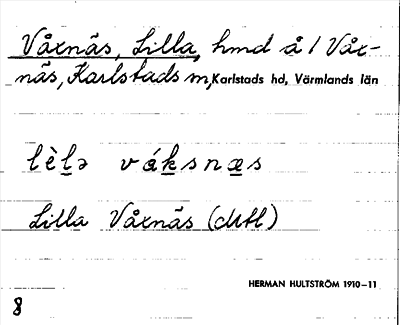 Våxnäs, Lilla, hmd å / Våx-
näs, Karlstads m, Karlstads hd, Värmlands län
lèlə váksnæs
Lilla Våxnäs (
HERMAN HULTSTRÖM 1910–11
8